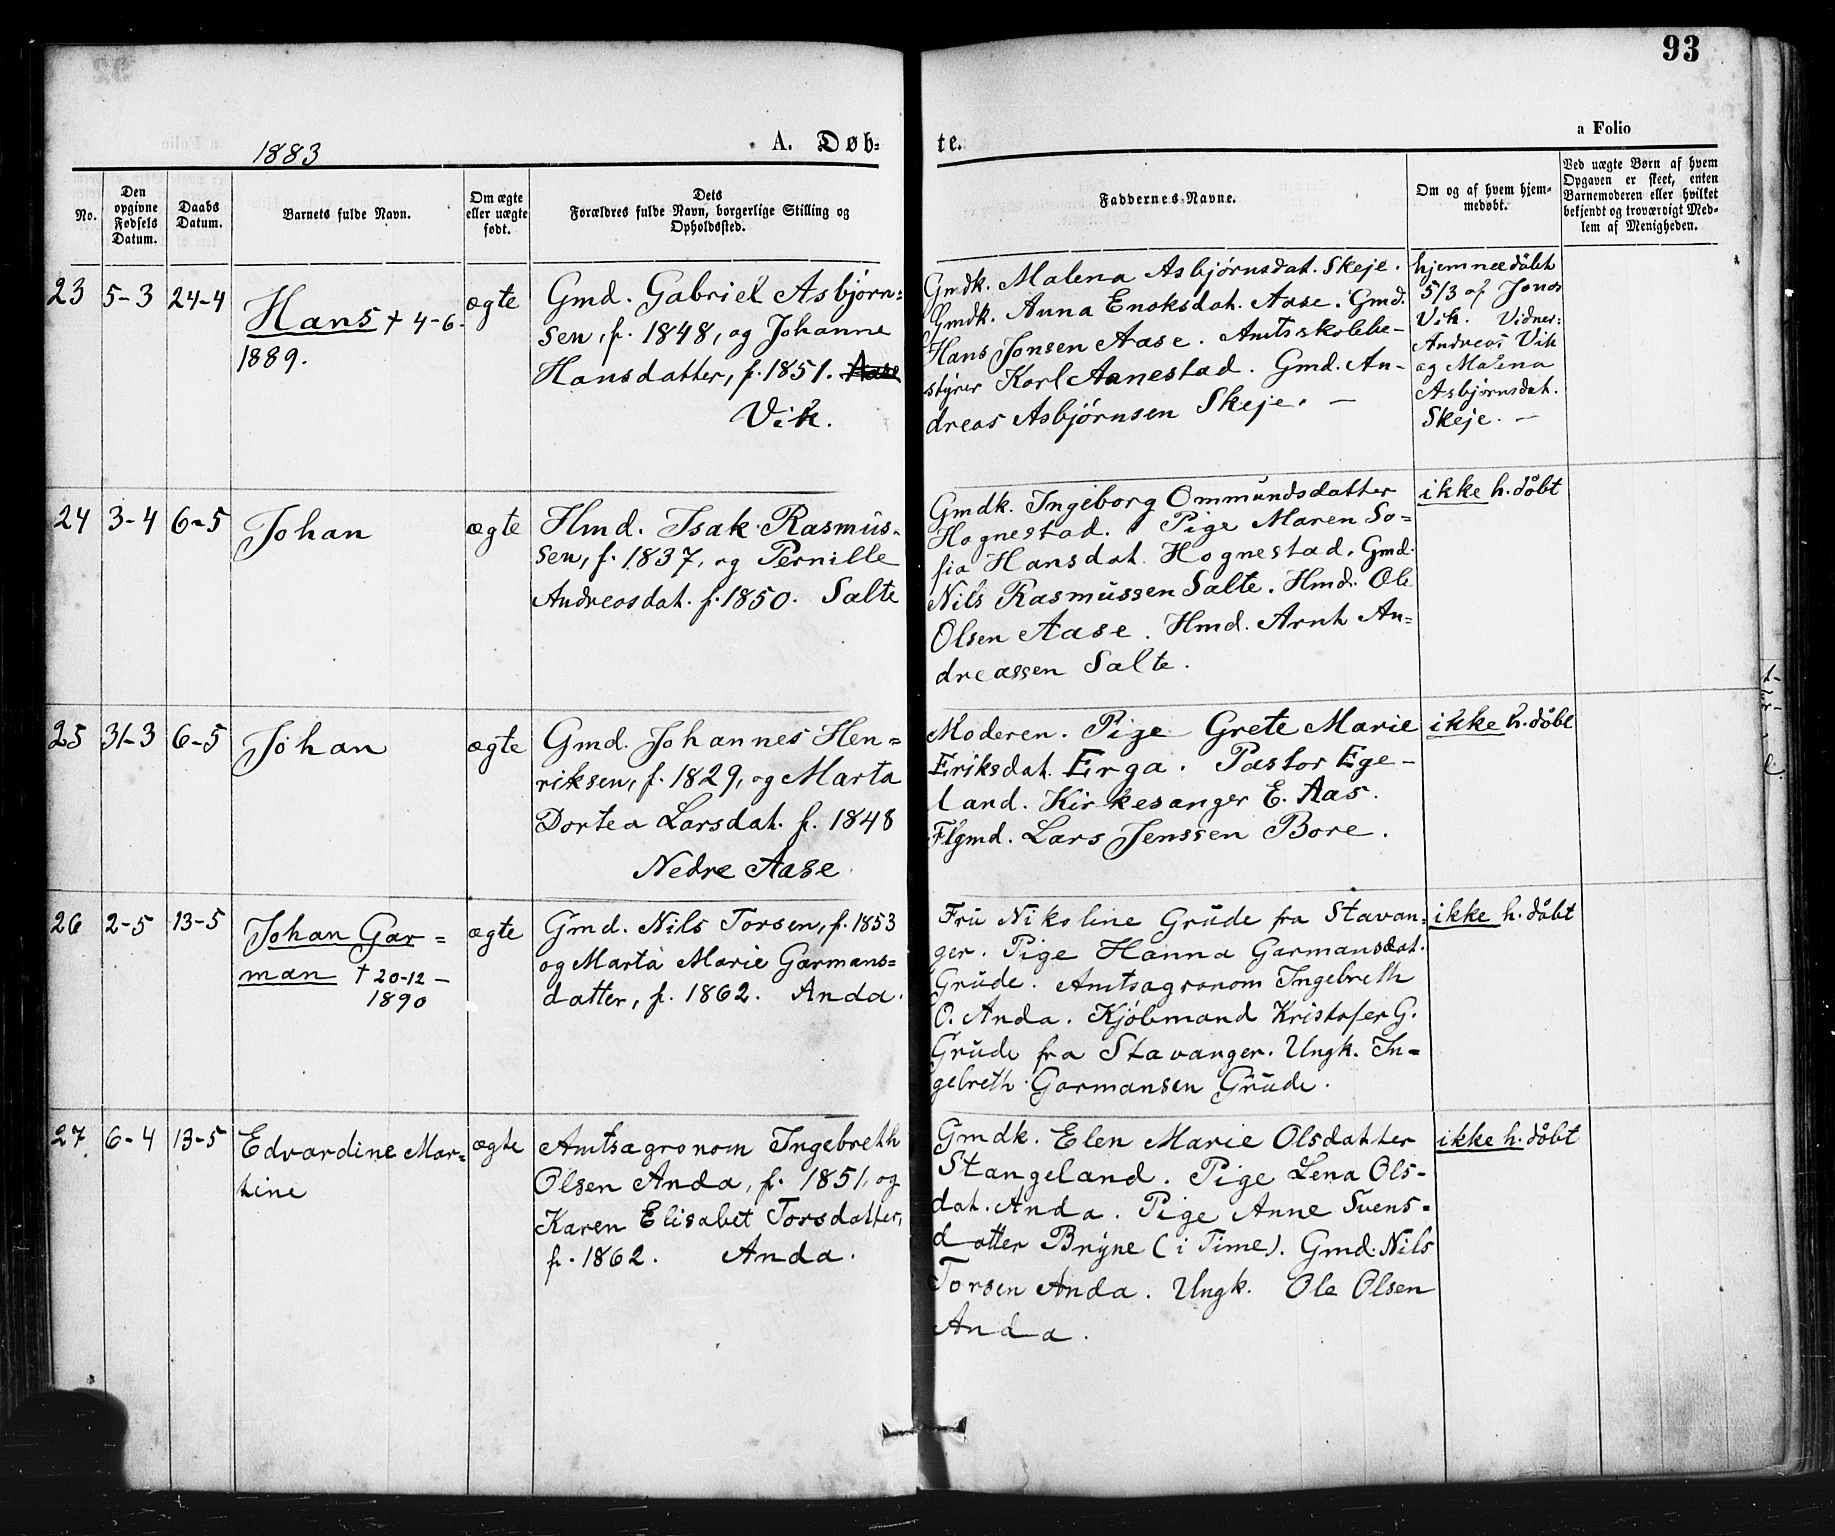 93
a Folio
1883
A. Døb-
te.
No.
Den
opgivne
Fødsels
Datum.
Daabs
Datum.
Barnets fulde Navn.
Om ægte
eller uægte
født.
Dets
Forældres fulde Navn, borgerlige Stilling og
Opholdssted.
Faddernes Navne.
Om og af hvem hjem-
medøbt.
Ved uægte Børn af hvem
Opgaven er skeet, enten
Barnemoderen eller hvilket
bekjendt og troværdigt Med-
lem af Menigheden.
23 5-3 24-4
Hans † 4-6-
1889.
ægte
Gmd. Gabriel Asbjørn=
sen, f. 1848, og Johanne
Hansdatter, f. 1851. Aase
Vik.
Gmdk. Malena Asbjørnsdat. Skeje.
Gmdk. Anna Enoksdat. Aase. Gmd.
Hans Jonsen Aase. Amtsskolebe-
styrer Karl Aanestad. Gmd. An-
dreas Asbjørnsen Skeje. —
hjemmedøbt
5/3 af Jonas
Vik. Vidner:
Andreas Vik
og Malena
Asbjørnsdat.
Skeje. —
24 3-4 6-5
Johan
ægte
Hmd. Isak Rasmus-
sen, f. 1837, og Pernille
Andreasdat. f. 1850. Salte
Gmdk. Ingeborg Ommundsdatter
Hognestad. Pige Maren So-
fia Hansdat. Hognestad. Gmd.
Nils Rasmussen Salte. Hmd. Ole
Olsen Aase. Hmd. Arnt An-
dreassen Salte.
ikke h. døbt
25 31-3 6-5
Johan
ægte
Gmd. Johannes Hen=
riksen, f. 1829, og Marta
Dortea Larsdat. f. 1848
Nedre Aase
Moderen. Pige Grete Marie
Eriksdat. Erga. Pastor Ege-
land. Kirkesanger E. Aas.
Flgmd. Lars Jenssen Bore.
ikke h. døbt
26 2-5 13-5
Johan Gar=
man † 20-12-
1890
ægte
Gmd. Nils Torsen, f. 1853
og Marta Marie Garmans=
datter, f. 1862. Anda.
Fru Nikoline Grude fra Stavan-
ger. Pige Hanna Garmansdat.
Grude. Amtsagronom Ingebreth
O. Anda. Kjøbmand Kristofer G.
Grude fra Stavanger. Ungk. In-
gebreth Garmansen Grude.
ikke h. døbt
27 6-4 13-5
Edvardine Mar=
tine
ægte
Amtsagronom Ingebreth
Olsen Anda, f. 1851, og
Karen Elisabet Torsdatter,
f. 1862. Anda.
Gmdk. Elen Marie Olsdatter
Stangeland. Pige Lena Ols-
dat. Anda. Pige Anne Svens-
datter Bryne (i Time). Gmd. Nils
Torsen Anda. Ungk. Ole Olsen
Anda.
ikke h. døbt